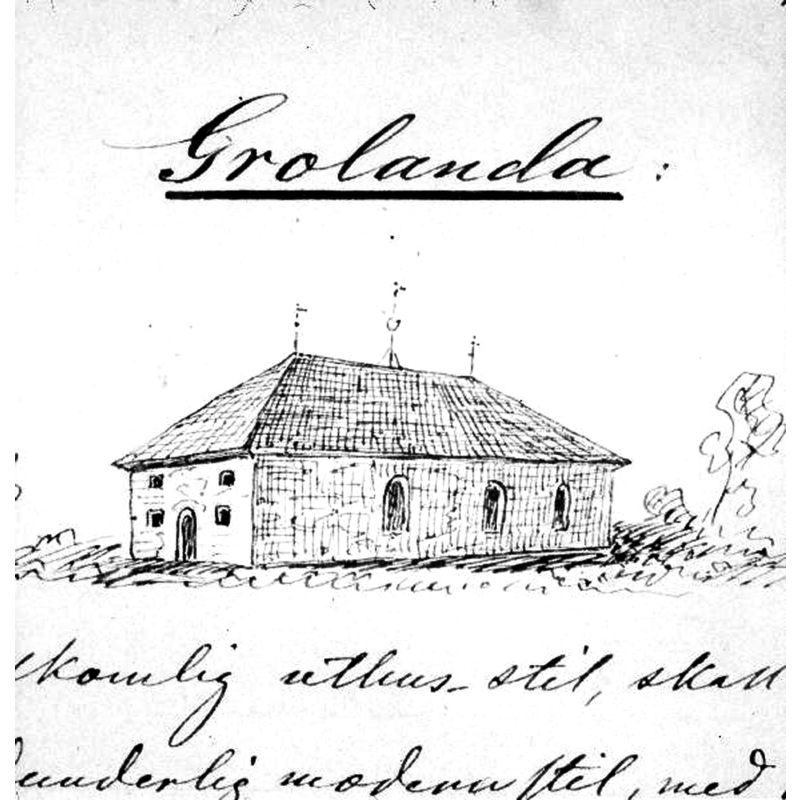 Grolanda:
komlig uthus-stil, skall
underlig modern stil, med